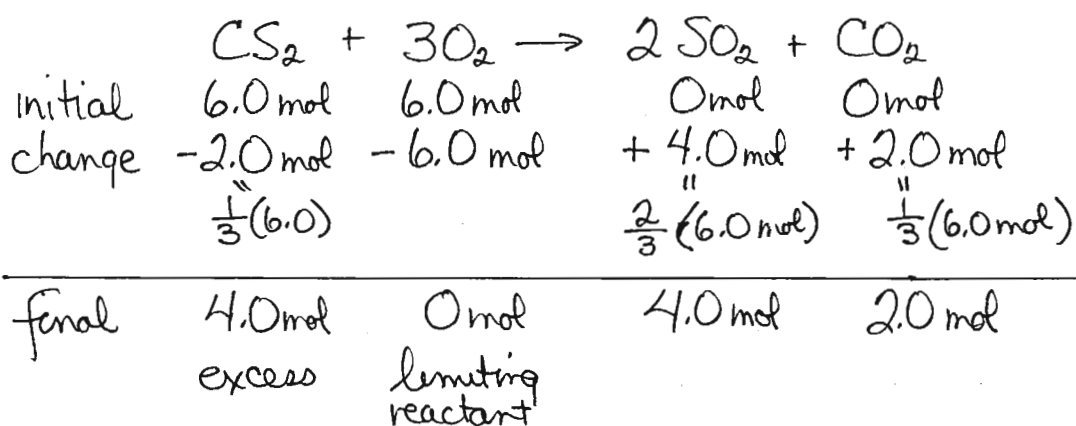 CS₂ + 3O₂ → 2 SO₂ + CO₂
initial 6.0 mol 6.0 mol 0 mol 0 mol
change -2.0 mol -6.0 mol + 4.0 mol + 2.0 mol
= = =
1/3 (6.0) 2/3 (6.0 mol) 1/3 (6.0 mol)
final 4.0 mol 0 mol 4.0 mol 2.0 mol
excess limiting
reactant